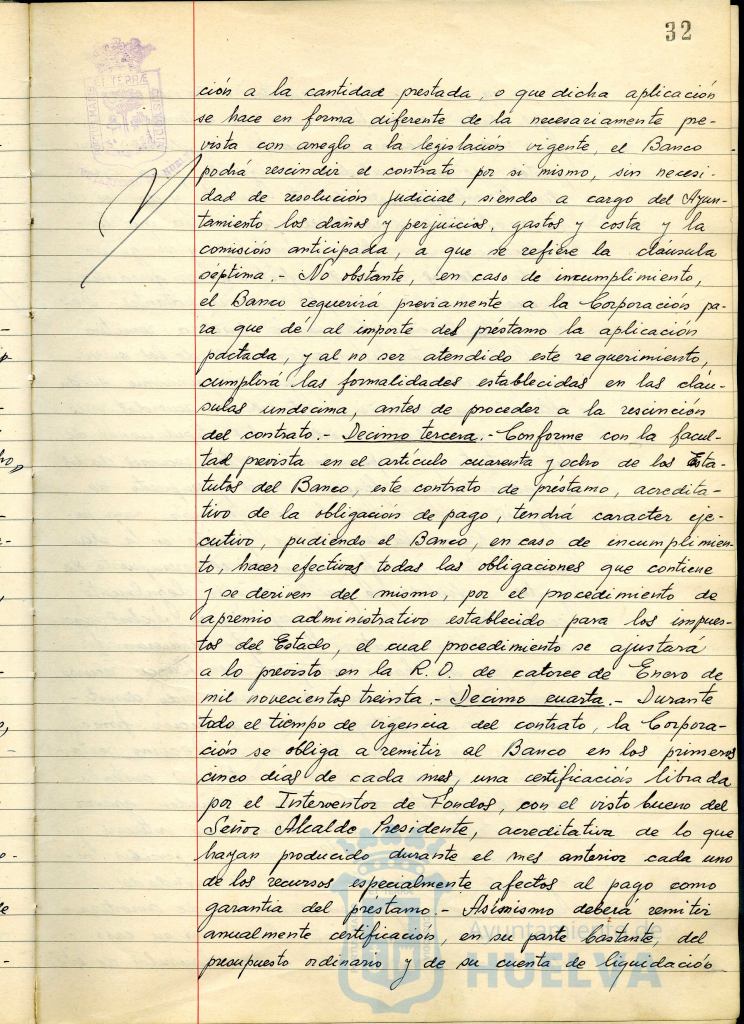 32
ción a la cantidad prestada, o que dicha aplicación
se hace en forma diferente de la necesariamente pre-
vista con arreglo a la legislación vigente, el Banco
podrá rescindir el contrato por si mismo, sin necesi-
dad de resolución judicial, siendo a cargo del Ayun-
tamiento los daños y perjuicios, gastos y costa y la
comisión anticipada, a que se refiere la cláusula
séptima.- No obstante, en caso de incumplimiento,
el Banco requerirá previamente a la Corporación pa-
ra que dé al importe del préstamo la aplicación
pactada, y al no ser atendido este requerimiento,
cumplirá las formalidades establecidas en las cláu-
sulas undecima, antes de proceder a la rescinción
del contrato.- Decimo tercera.- Conforme con la facul-
tad prevista en el artículo cuarenta y ocho de los Esta-
tutos del Banco, este contrato de préstamo, acredita-
tivo de la obligación de pago, tendrá caracter eje-
cutivo, pudiendo el Banco, en caso de incumplimien-
to, hacer efectivas todas las obligaciones que contiene
y se deriven del mismo, por el procedimiento de
apremio administrativo establecido para los impues-
tos del Estado, el cual procedimiento se ajustará
a lo previsto en la R. O. de catorce de Enero de
mil novecientos treinta.- Decimo cuarta.- Durante
todo el tiempo de vigencia del contrato, la Corpora-
ción se obliga a remitir al Banco en los primeros
cinco días de cada mes, una certificación librada
por el Interventor de Fondos, con el visto bueno del
Señor Alcalde Presidente, acreditativa de lo que
hayan producido durante el mes anterior cada uno
de los recursos especialmente afectos al pago como
garantia del préstamo.- Asimismo deberá remitir
anualmente certificación, en su parte bastante, del
presupuesto ordinario y de su cuenta de liquidación
Ayuntamiento de
HUELVA